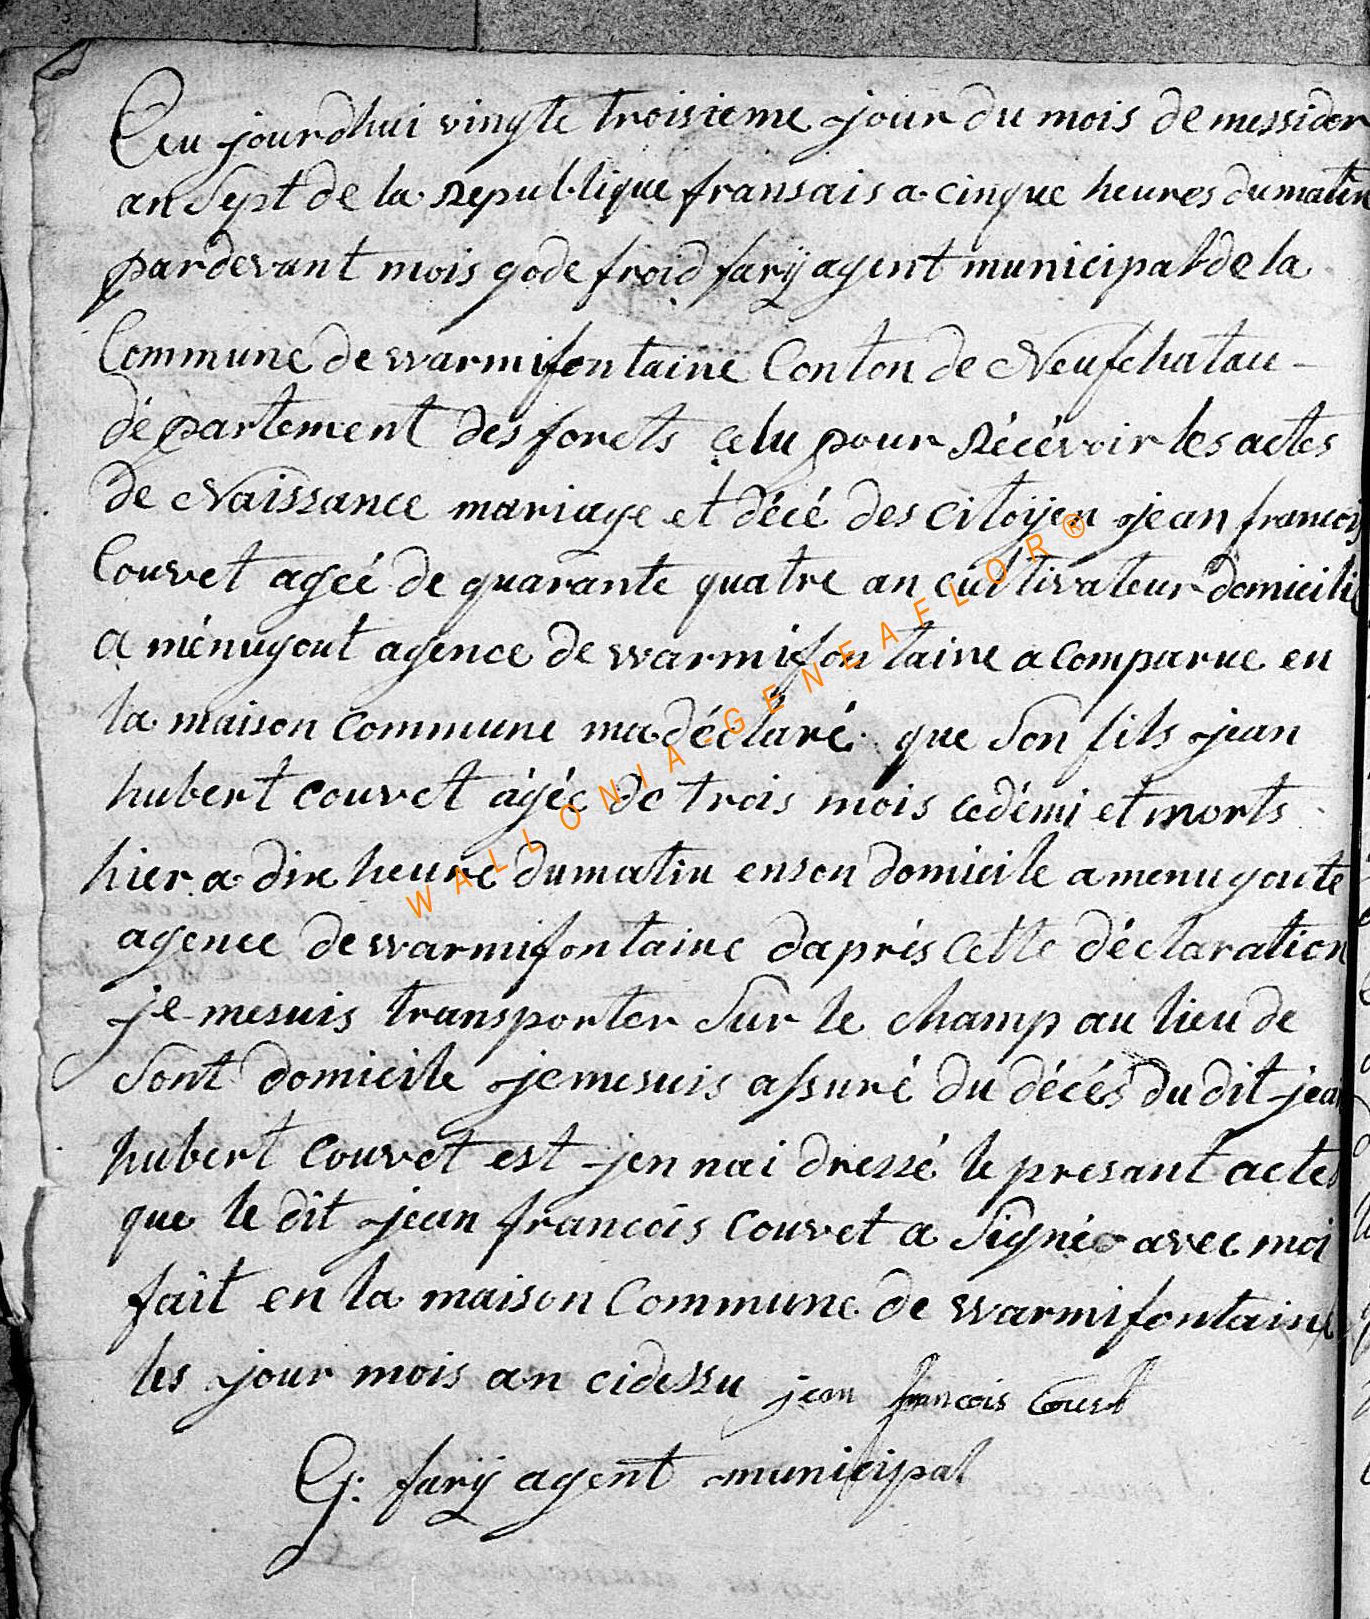 Ceu jourdhui vingte troisieme jour du mois de messidor
an Sept de la republique fransais a cinque heures dumatin
pardevant mois gode froid farÿ agent municipal de la
Commune de warmifontaine Conton de Neufchatau
département des forets celu pour Récévoir les actes
de Naissance mariage et décé des citoÿen jean francois
Couvet ageé de quarante quatre an cultivateur domicilié
a ménugout agence de warmifontaine a comparue en
la maison commune ma déclaré que Son fils jean
hubert couvet agée de trois mois ce démi et morts
hier a dix heure dumatin enson domicile a menugoute
agence de warmifontaine daprés cette déclaration
je mesuis transporter Sur le champ au lieu de
Sont domicile jemesuis assuré du décés du dit jean
hubert couvet est jen nai dressé le presant acte
que le dit jean francois couvet a Signée avec moi
fait en la maison Commune de warmifontaine
les jour mois an cidessu jean francois Couvet
G: farÿ agent municipal
WALLONIA-GENEAFLOR®